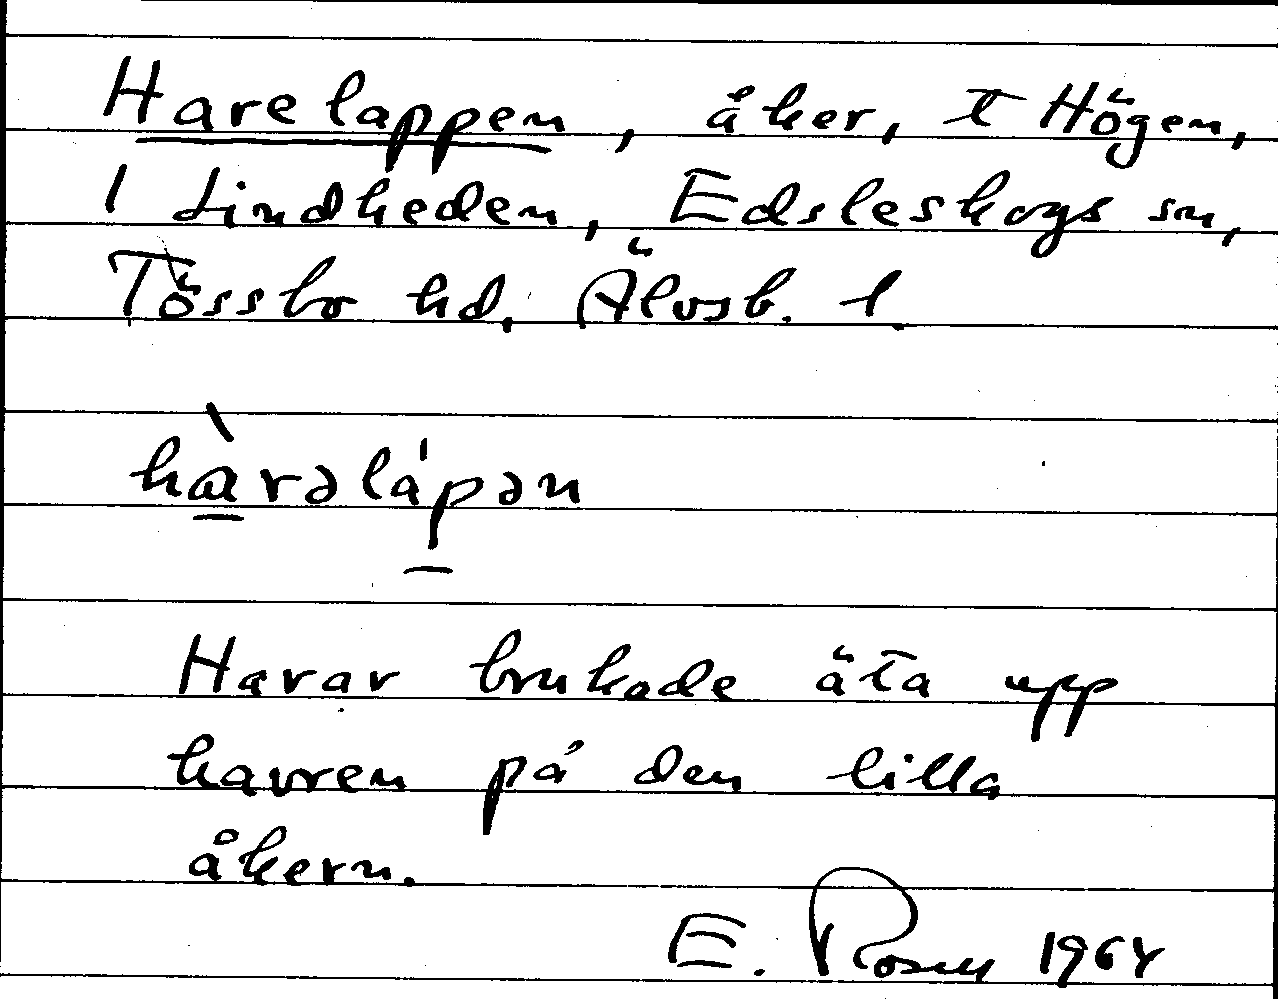 Harelappen, åker, t Högen,
1 Lindheden, Edsleskogs sn,
Tössbo hd. Älvsb. l.
hàrəlápən
Harar brukade äta upp
havren på den lilla
åkern.
E. Rosen 1964